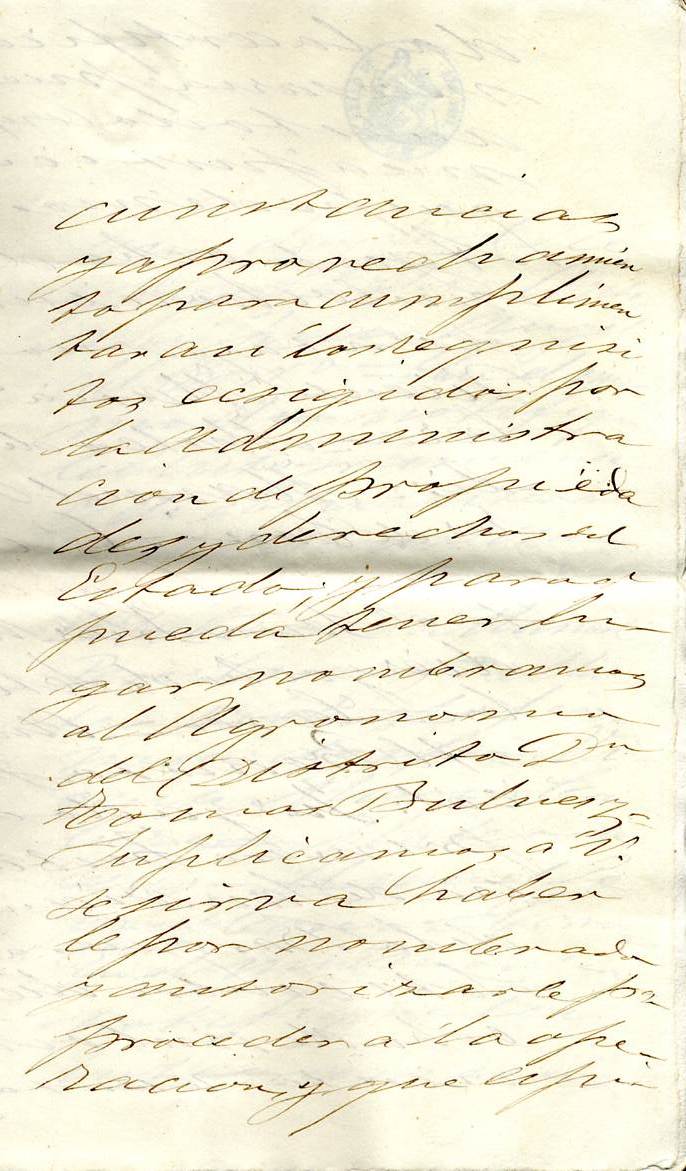 cunstancias
y aprovechamien
to para cumplimen
tar asi los requisi
tos ecsigidos por
la Administra
cion de propieda
des y derechos del
Estado; y para q
pueda tener lu-
gar nombramos
al Agronomo
del Distrito Dn
Tomas
Suplicamos a V.
se sirva haber
le por nombrado
y autorizarle pa
proceder a la ope-
racion, y que espi